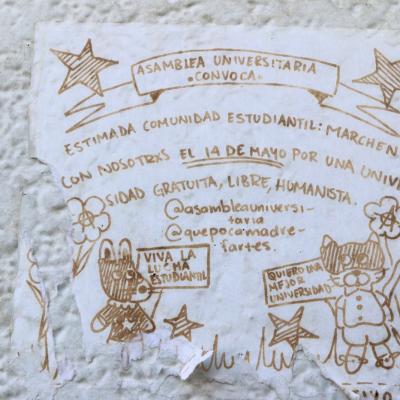 ASAMBLEA UNIVERSITARIA
•CONVOCA•
ESTIMADA COMUNIDAD ESTUDIANTIL: MARCHEN
CON NOSOTRXS EL 14 DE MAYO POR UNA UNIVE
SIDAD GRATUITA, LIBRE, HUMANISTA.
@asambleauniversi-
taria
@quepocamadre-
fartes.
VIVA LA
LUCHA
ESTUDIANTIL
QUIERO UNA
MEJOR
UNIVERSIDAD